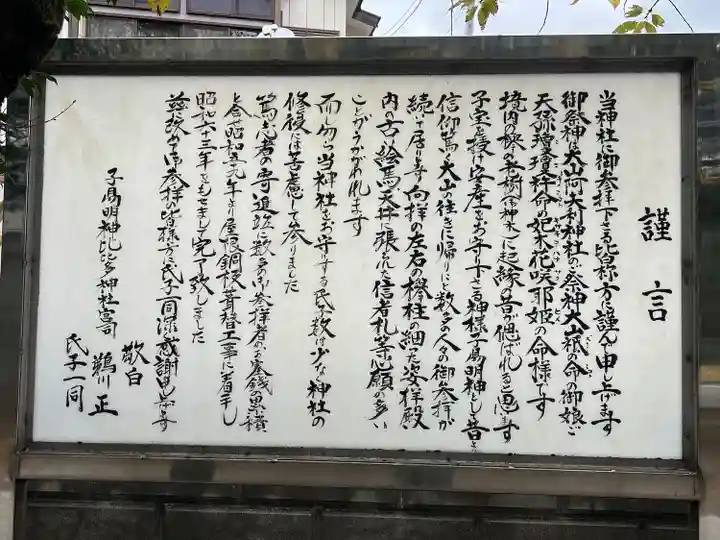 謹言
当神社に御参拝下さる皆様方に謹んで申し上げます
御祭神は大山阿夫利神社の御祭神大山祇の命の御娘ご
天孫瓊瓊杵命の妃木花咲耶姫の命様です
境内の欅の老樹（御神木）に起縁の昔が偲ばれる通ります
子宝を授け安産をお守り下さる神様子易明神として昔から
信仰篤く大山の往きに帰りにと数多の人々の御参拝が
続いて居ります向拝の左右の欅柱の細った姿拝殿
内の古い絵馬天井に張られた信者札等心願の多い
ことがうかがわれます
而し乍ら当神社をお守りする氏子数は少な神社の
修復には苦慮して参りました
篤志者の寄進並に数多の御参拝者のお賽銭の累積
と合せ昭和五九年より屋根銅板葺替工事に着手し
昭和六十三年をもちまして完了致しました
茲に改めて御参拝の皆様方に氏子一同深く感謝申し上げます
子易明神比々多神社宮司
鵜川正
敬白
氏子一同